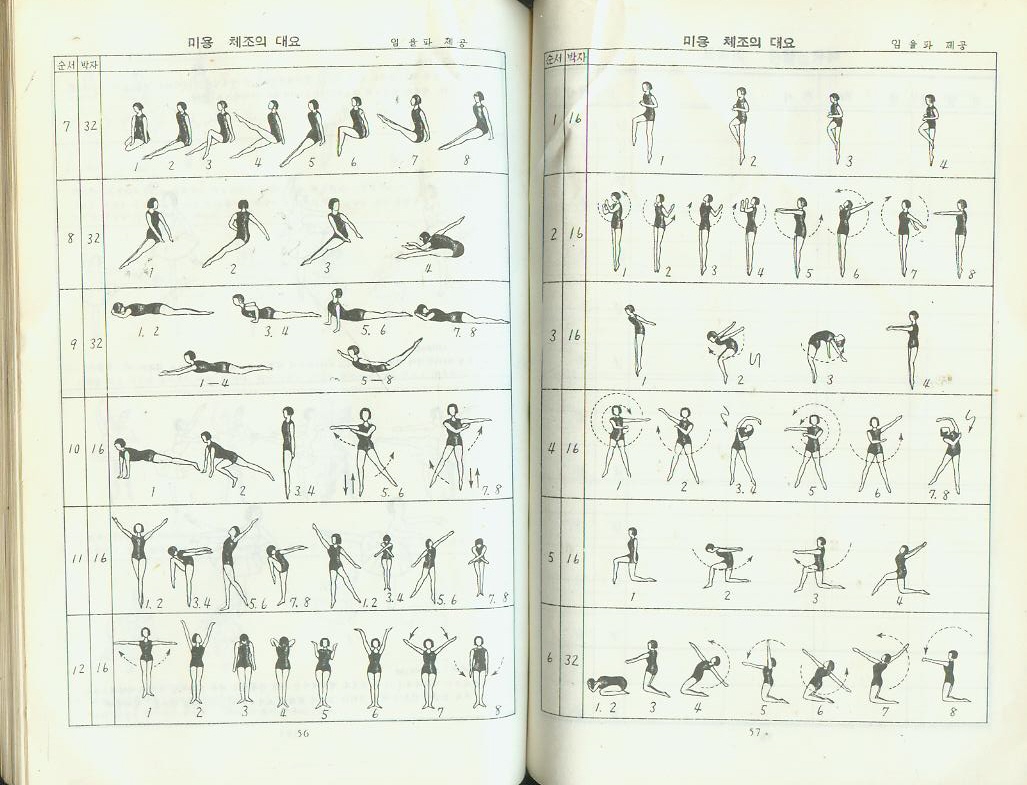 미용 체조의 대요 임 율 파 제 공
순서 박자
7 32 1 2 3 4 5 6 7 8
8 32 1 2 3 4
9 32 1. 2 3. 4 5. 6 7. 8
1—4 5—8
10 16 1 2 3. 4 5. 6 7. 8
11 16 1. 2 3. 4 5. 6 7. 8 1. 2 3. 4 5. 6 7. 8
12 16 1 2 3 4 5 6 7 8
56
미용 체조의 대요 임 율 파 제 공
순서 박자
1 16 1 2 3 4
2 16 1 2 3 4 5 6 7 8
3 16 1 2 3 4
4 16 1 2 3. 4 5 6 7. 8
5 16 1 2 3 4
6 32 1. 2 3 4 5 6 7 8
57